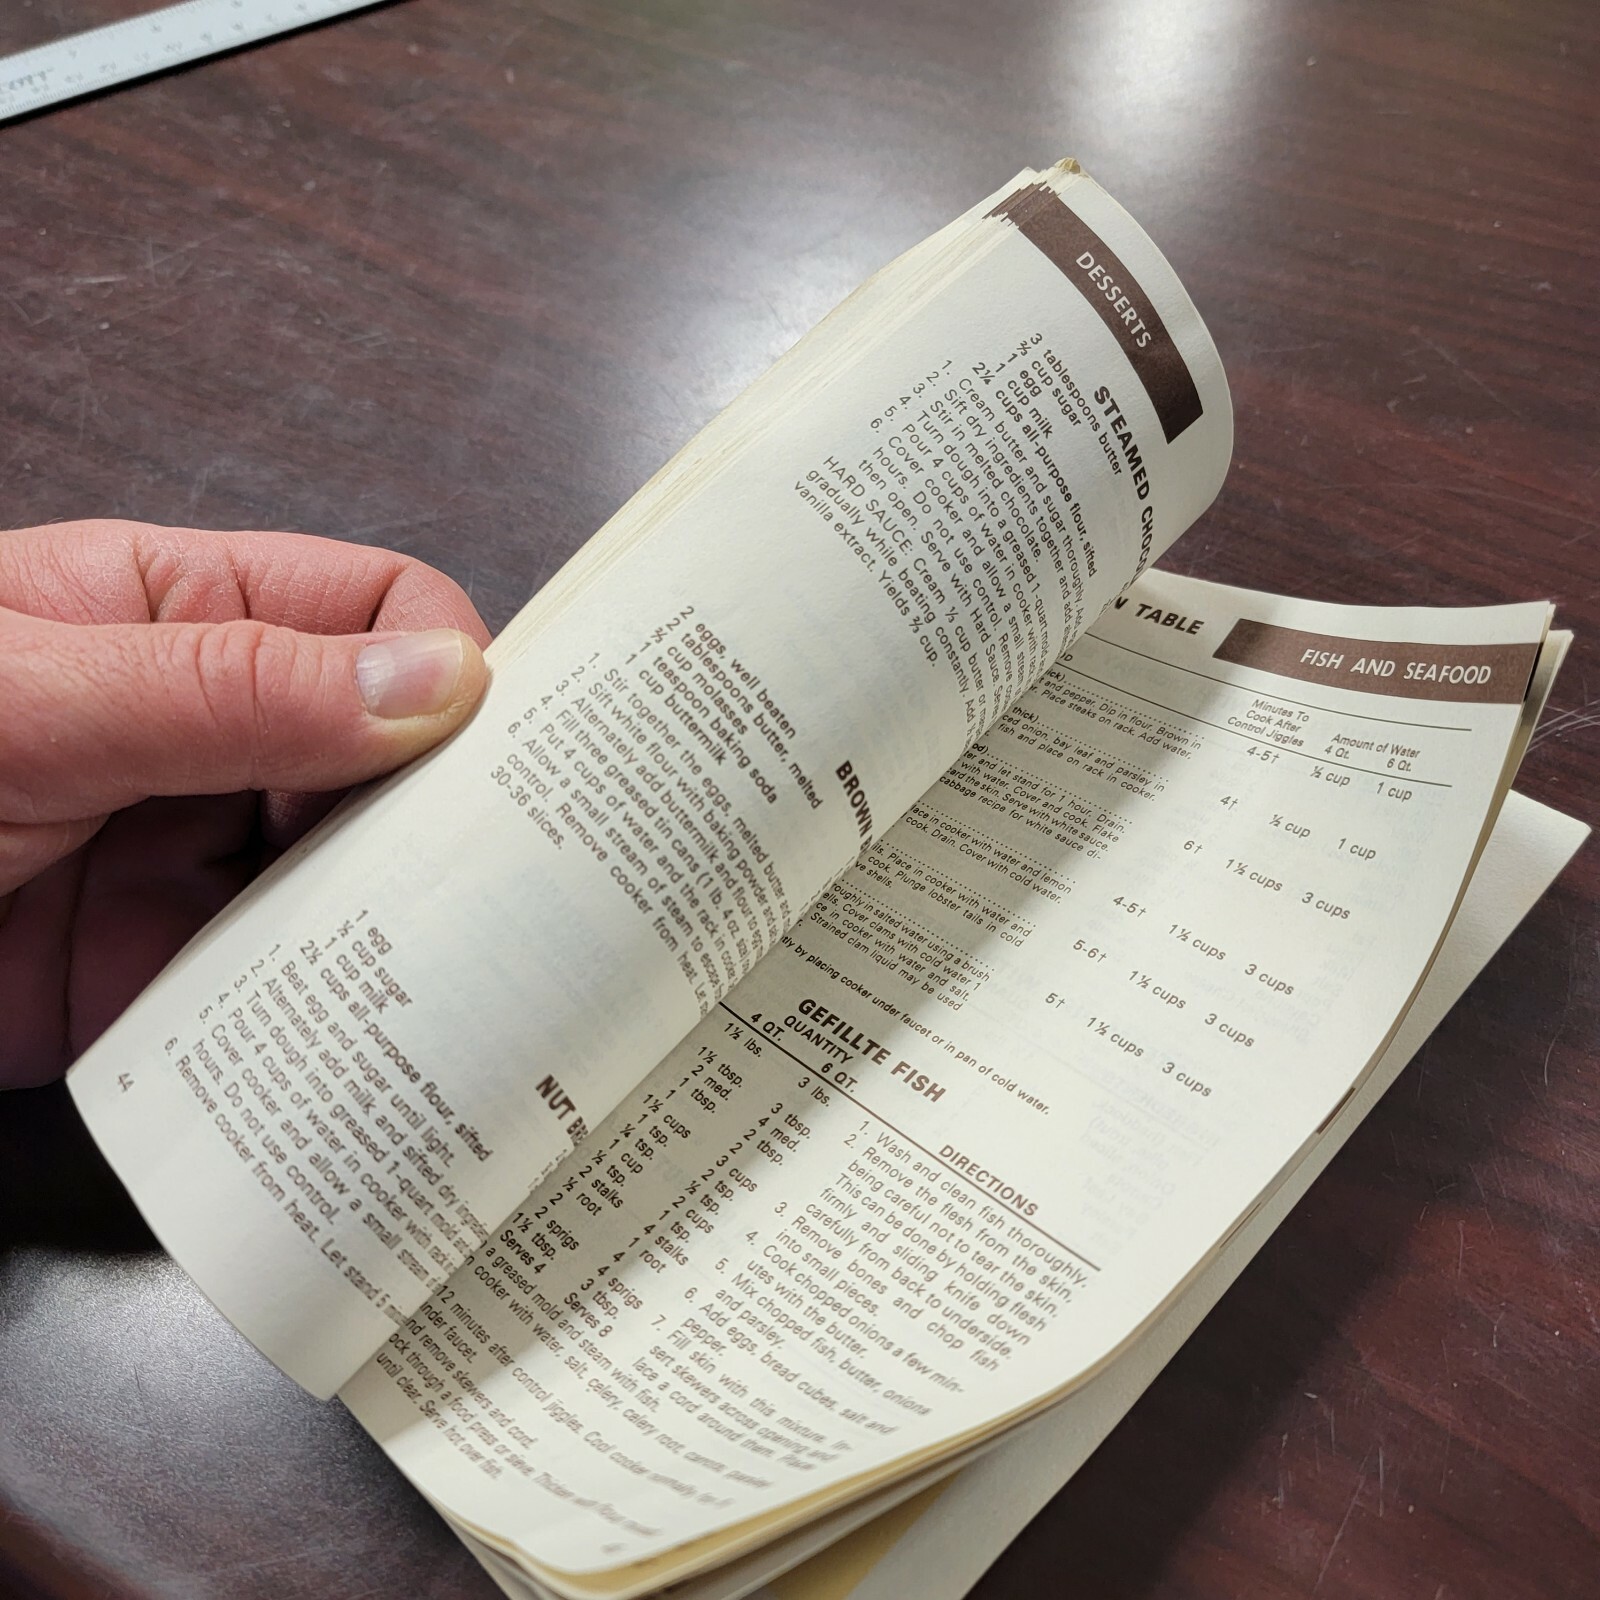 DESSERTS
STEAMED
3 tablespoons butter
⅔ cup sugar
1 egg
1 cup milk
2¼ cups all-purpose flour, sifted
1. Cream butter and sugar thoroughly.
2. Sift dry ingredients together and add
3. Stir in melted chocolate.
4. Turn dough into a greased 1-quart mold
5. Pour 4 cups of water in cooker with
6. Cover cooker and allow a small stream
hours. Do not use control. Remove
then open. Serve with Hard Sauce.
HARD SAUCE: Cream ⅓ cup butter or
gradually while beating constantly. Add
vanilla extract. Yields ⅔ cup.
BROWN
2 eggs, well beaten
2 tablespoons butter, melted
⅔ cup molasses
1 teaspoon baking soda
1 cup buttermilk
1. Stir together the eggs, melted butter and
2. Sift white flour with baking powder and
3. Alternately add buttermilk and flour to egg
4. Fill three greased tin cans (1 lb. 4 oz. size)
5. Put 4 cups of water and the rack in
6. Allow a small stream of steam to escape
control. Remove cooker from heat.
30-36 slices.
NUT
1 egg
½ cup sugar
1 cup milk
2½ cups all-purpose flour, sifted
1. Beat egg and sugar until light.
2. Alternately add milk and sifted dry
3. Turn dough into greased 1-quart mold
4. Pour 4 cups of water in cooker with rack
5. Cover cooker and allow a small stream of
hours. Do not use control.
6. Remove cooker from heat. Let stand 5
44
TABLE
FISH AND SEAFOOD
Minutes To
Cook After
Control Jiggles
Amount of Water
4 Qt. 6 Qt.
and pepper. Dip in flour. Brown in
Place steaks on rack. Add water.
4-5† ½ cup 1 cup
thick)
onion, bay leaf and parsley in
fish and place on rack in cooker.
4† ½ cup 1 cup
and let stand for 1 hour. Drain.
with water. Cover and cook. Flake
the skin. Serve with white sauce.
cabbage recipe for white sauce di-
6† 1½ cups 3 cups
in cooker with water and lemon
cook. Drain. Cover with cold water.
4-5† 1½ cups 3 cups
Place in cooker with water and
cook. Plunge lobster tails in cold
shells.
5-6† 1½ cups 3 cups
in salted water using a brush
Cover clams with cold water 1
in cooker with water and salt.
Strained clam liquid may be used
5† 1½ cups 3 cups
by placing cooker under faucet or in pan of cold water.
GEFILLTE FISH
QUANTITY
4 QT. 6 QT.
DIRECTIONS
1½ lbs. 3 lbs.
1½ tbsp. 3 tbsp.
2 med. 4 med.
1 tbsp. 2 tbsp.
1
1½ cups 3 cups
1 tsp. 2 tsp.
¼ tsp. ½ tsp.
1 cup 2 cups
½ tsp. 1 tsp.
2 stalks 4 stalks
½ root 1 root
2 sprigs 4 sprigs
1½ tbsp. 3 tbsp.
Serves 4 Serves 8
1. Wash and clean fish thoroughly.
2. Remove the flesh from the skin,
being careful not to tear the skin.
This can be done by holding flesh
firmly and sliding knife down
carefully from back to underside.
3. Remove bones and chop fish
into small pieces.
4. Cook chopped onions a few min-
utes with the butter.
5. Mix chopped fish, butter, onions
and parsley.
6. Add eggs, bread cubes, salt and
pepper.
7. Fill skin with this mixture. In-
sert skewers across opening and
lace a cord around them.
a greased mold and steam with fish.
cooker with water, salt, celery, celery root, carrots,
12 minutes after control jiggles. Cool cooker
under faucet.
and remove skewers and cord.
through a food press or sieve. Thicken with
until clear. Serve hot over fish.